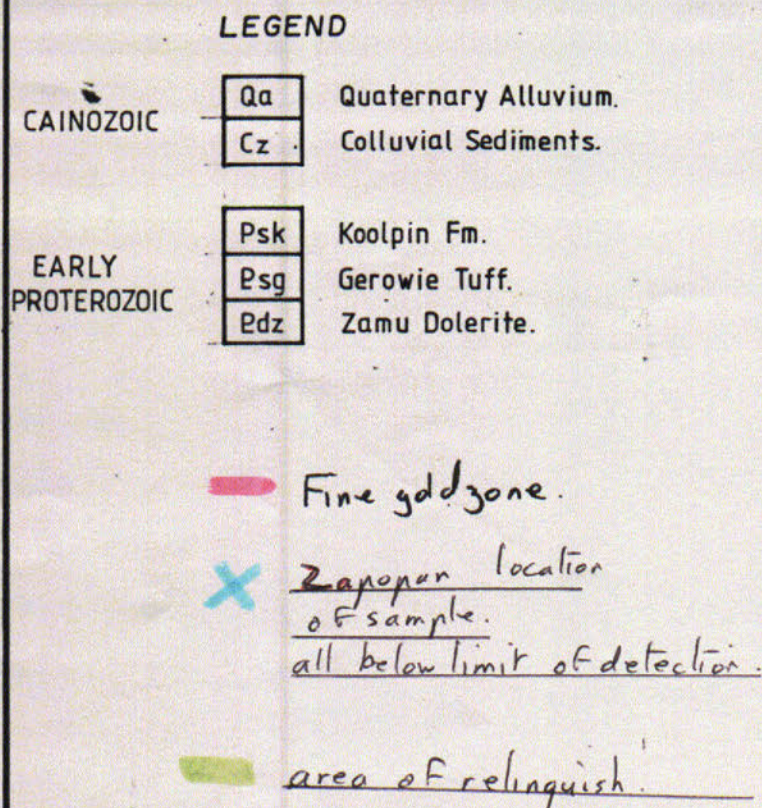 LEGEND
CAINOZOIC
Qa Quaternary Alluvium.
Cz Colluvial Sediments.
EARLY
PROTEROZOIC
Psk Koolpin Fm.
Psg Gerowie Tuff.
Pdz Zamu Dolerite.
Fine gold zone.
Zapopan location
of sample.
all below limit of detection.
area of relinquish.